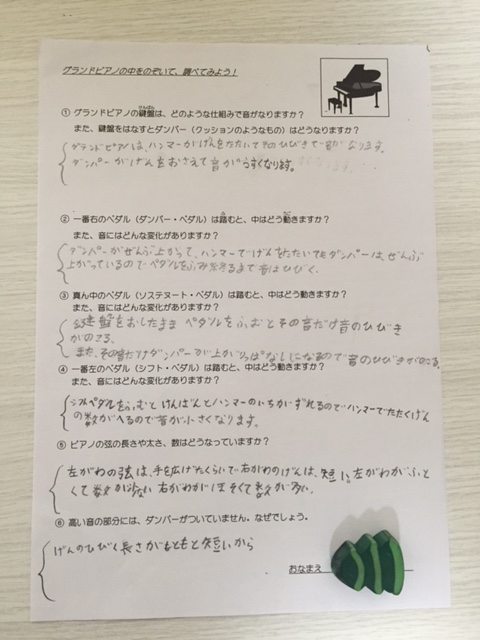 グランドピアノの中をのぞいて、調べてみよう！
① グランドピアノの鍵盤は、どのような仕組みで音がなりますか？
また、鍵盤をはなすとダンパー（クッションのようなもの）はどうなりますか？
グランドピアノは、ハンマーがげんをたたいてそのひびきで音がなります。
ダンパーがげんをおさえて音がうすくなります。
② 一番右のペダル（ダンパー・ペダル）は踏むと、中はどう動きますか？
また、音にはどんな変化がありますか？
ダンパーがぜんぶ上がって、ハンマーでげんをたたいてもダンパーは、ぜんぶ
上がっているのでペダルをふみ終るまで音はひびく。
③ 真ん中のペダル（ソステヌート・ペダル）は踏むと、中はどう動きますか？
また、音にはどんな変化がありますか？
鍵盤をおしたまま ペダルをふむとその音だけ音のひびき
がのこる。
また、その音だけダンパーが上がりっぱなしになるので音のひびきがのこる。
④ 一番左のペダル（シフト・ペダル）は踏むと、中はどう動きますか？
また、音にはどんな変化がありますか？
シフトペダルをふむとけんばんとハンマーのいちがずれるのでハンマーでたたくげん
の数がへるので音が小さくなります。
⑤ ピアノの弦の長さや太さ、数はどうなっていますか？
左がわの弦は、手を広げたくらいで右がわのげんは、短い。左がわがふと
くて数が少ない 右がわがほそくて数が多い。
⑥ 高い音の部分には、ダンパーがついていません。なぜでしょう。
げんのひびく長さがもともと短いから
おなまえ